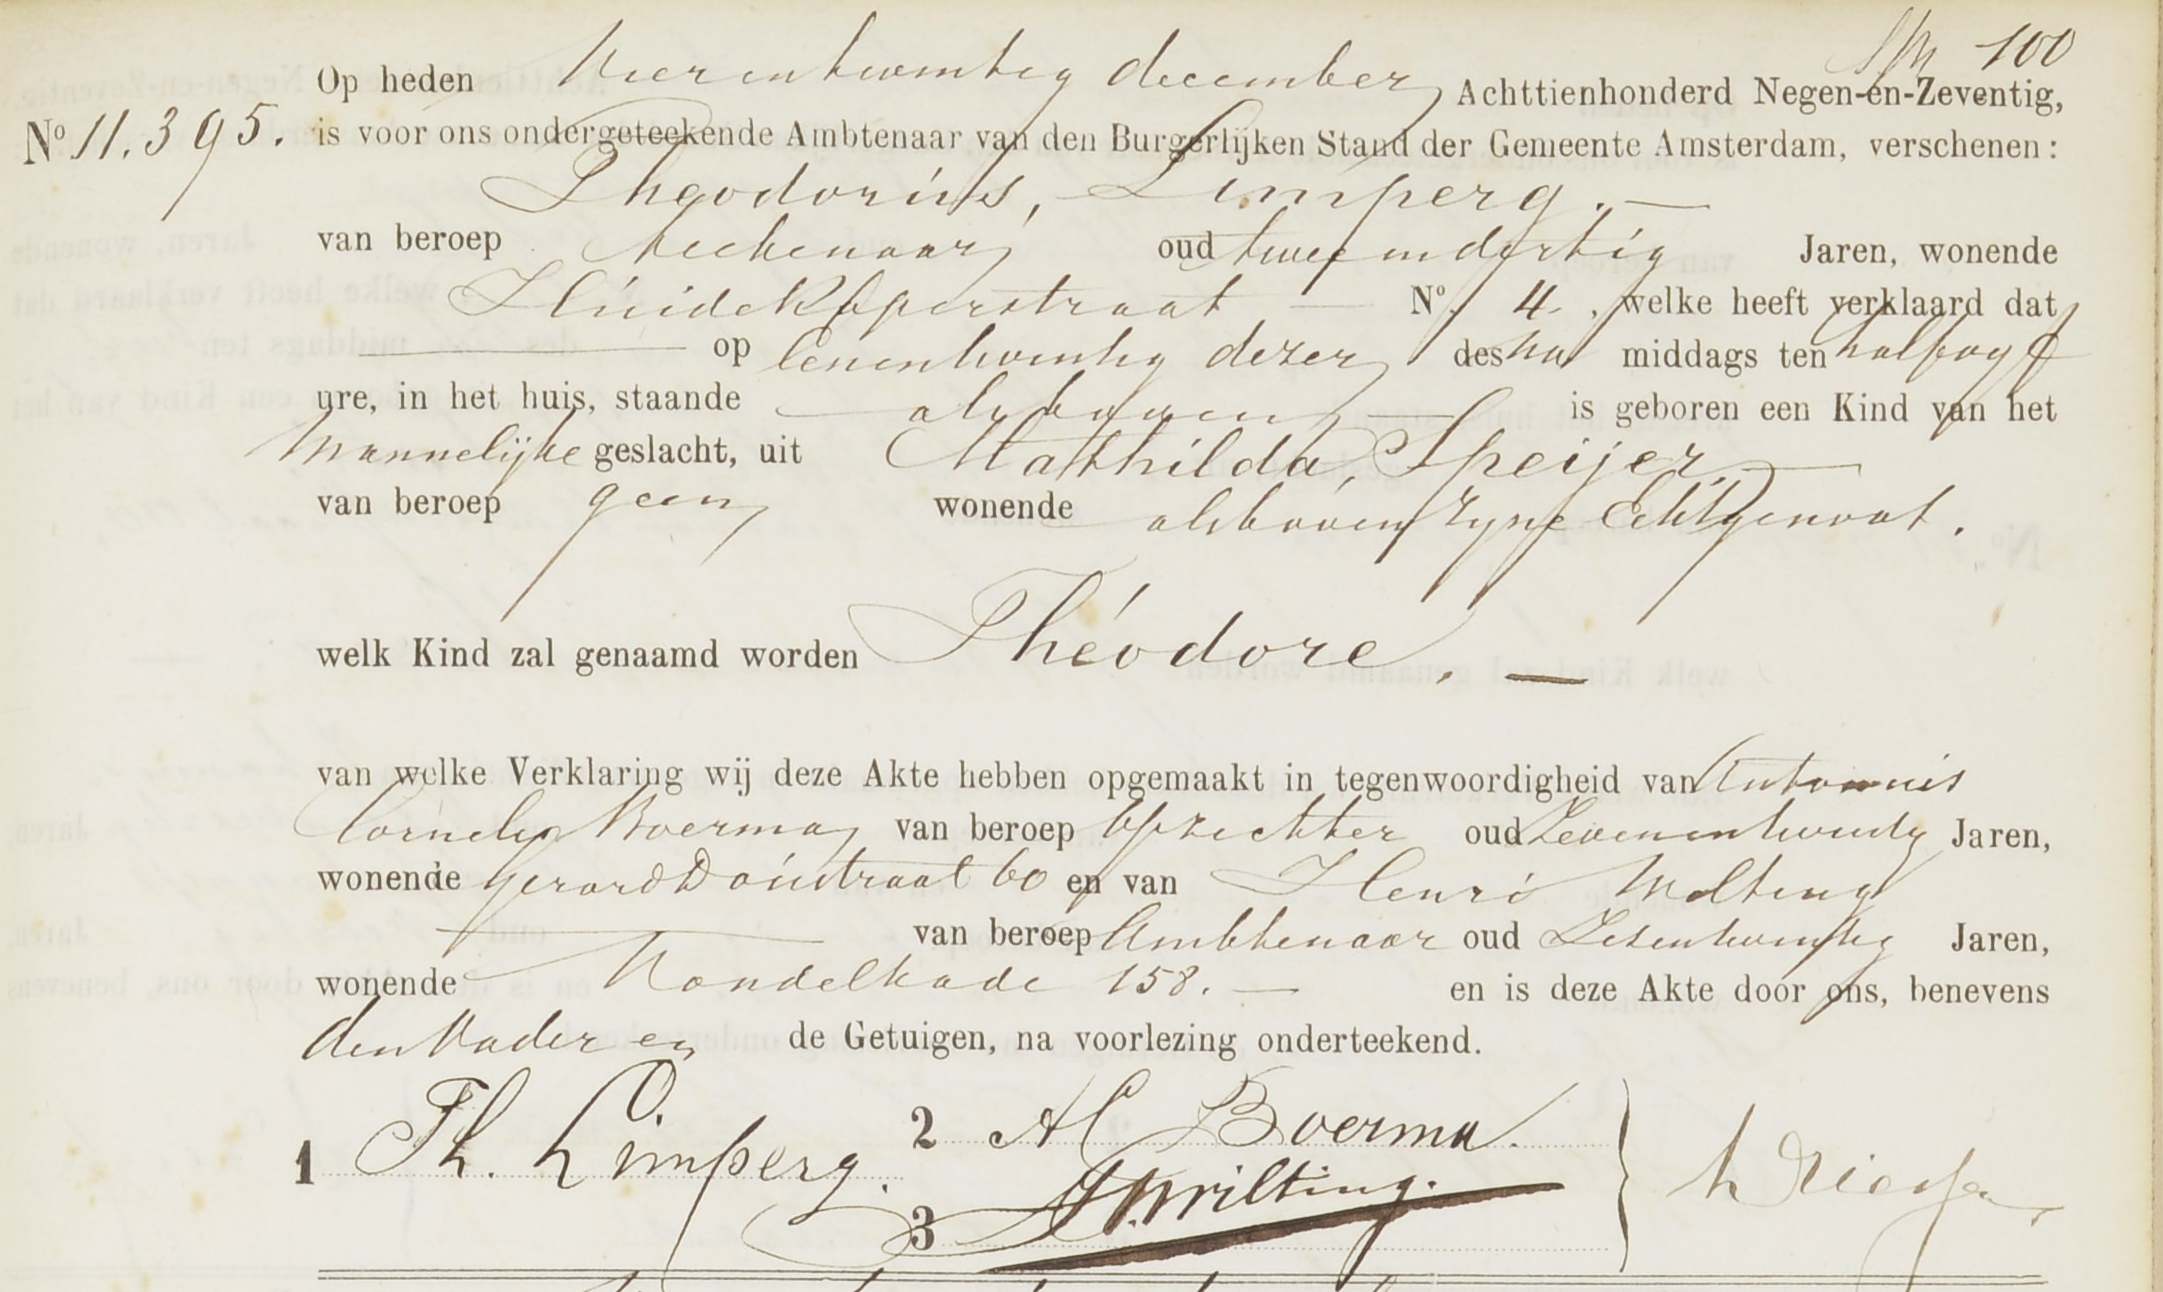 100
Op heden Vierentwintig december Achttienhonderd Negen-en-Zeventig,
No 11.395. is voor ons ondergeteekende Ambtenaar van den Burgerlijken Stand der Gemeente Amsterdam, verschenen:
Theodorus, Limperg. —
van beroep Teekenaar, oud tweeendertig Jaren, wonende
Huidekoperstraat — No. 4. , welke heeft verklaard dat
— op Eenentwintig dezer, des na middags ten half vijf
ure, in het huis, staande alsboven, is geboren een Kind van het
Mannelijke geslacht, uit Mathilda, Speijer, —
van beroep geen, wonende alsboven, zyne Echtgenoot.
welk Kind zal genaamd worden Théodore. —
van welke Verklaring wij deze Akte hebben opgemaakt in tegenwoordigheid van Antonnis
Cornelis Boerma, van beroep Opzichter oud Zevenentwintig Jaren,
wonende Gerard Doustraat 60 en van Henri Wilting
van beroep Ambtenaar oud Zesentwintig Jaren,
wonende Vondelkade 158. — en is deze Akte door ons, benevens
den Vader en de Getuigen, na voorlezing onderteekend.
1 Th. Limperg.
2 AC Boerma.
3 H Wilting.